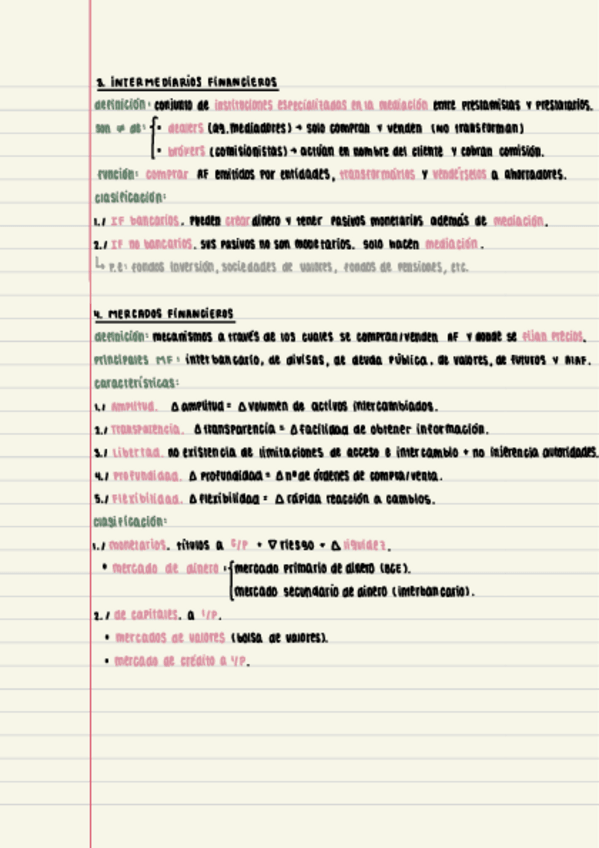 3. INTERMEDIARIOS FINANCIEROS
definición: conjunto de instituciones especializadas en la mediación entre prestamistas y prestatarios.
son ≠ de: • dealers (ag. mediadores) → solo compran y venden (NO transforman)
• brokers (comisionistas) → actúan en nombre del cliente y cobran comisión.
función: comprar AF emitidos por entidades, transformarlos y vendérselos a ahorradores.
clasificación:
1./ IF bancarios. pueden crear dinero y tener pasivos monetarios además de mediación.
2./ IF no bancarios. sus pasivos no son monetarios. solo hacen mediación.
↳ P.e: fondos inversión, sociedades de valores, fondos de pensiones, etc.
4. MERCADOS FINANCIEROS
definición: mecanismos a través de los cuales se compran/venden AF y donde se fijan precios.
principales MF: interbancario, de divisas, de deuda pública, de valores, de futuros y AIAF.
características:
1./ Amplitud. Δ amplitud = Δ volumen de activos intercambiados.
2./ Transparencia. Δ transparencia = Δ facilidad de obtener información.
3./ Libertad. no existencia de limitaciones de acceso e intercambio + no injerencia autoridades.
4./ Profundidad. Δ profundidad = Δ nº de órdenes de compra/venta.
5./ Flexibilidad. Δ flexibilidad = Δ rápida reacción a cambios.
clasificación:
1./ monetarios. títulos a C/P + ∇ riesgo + Δ liquidez.
• mercado de dinero: mercado primario de dinero (BCE).
mercado secundario de dinero (interbancario).
2./ de capitales. a L/P.
• mercados de valores (bolsa de valores).
• mercado de crédito a L/P.